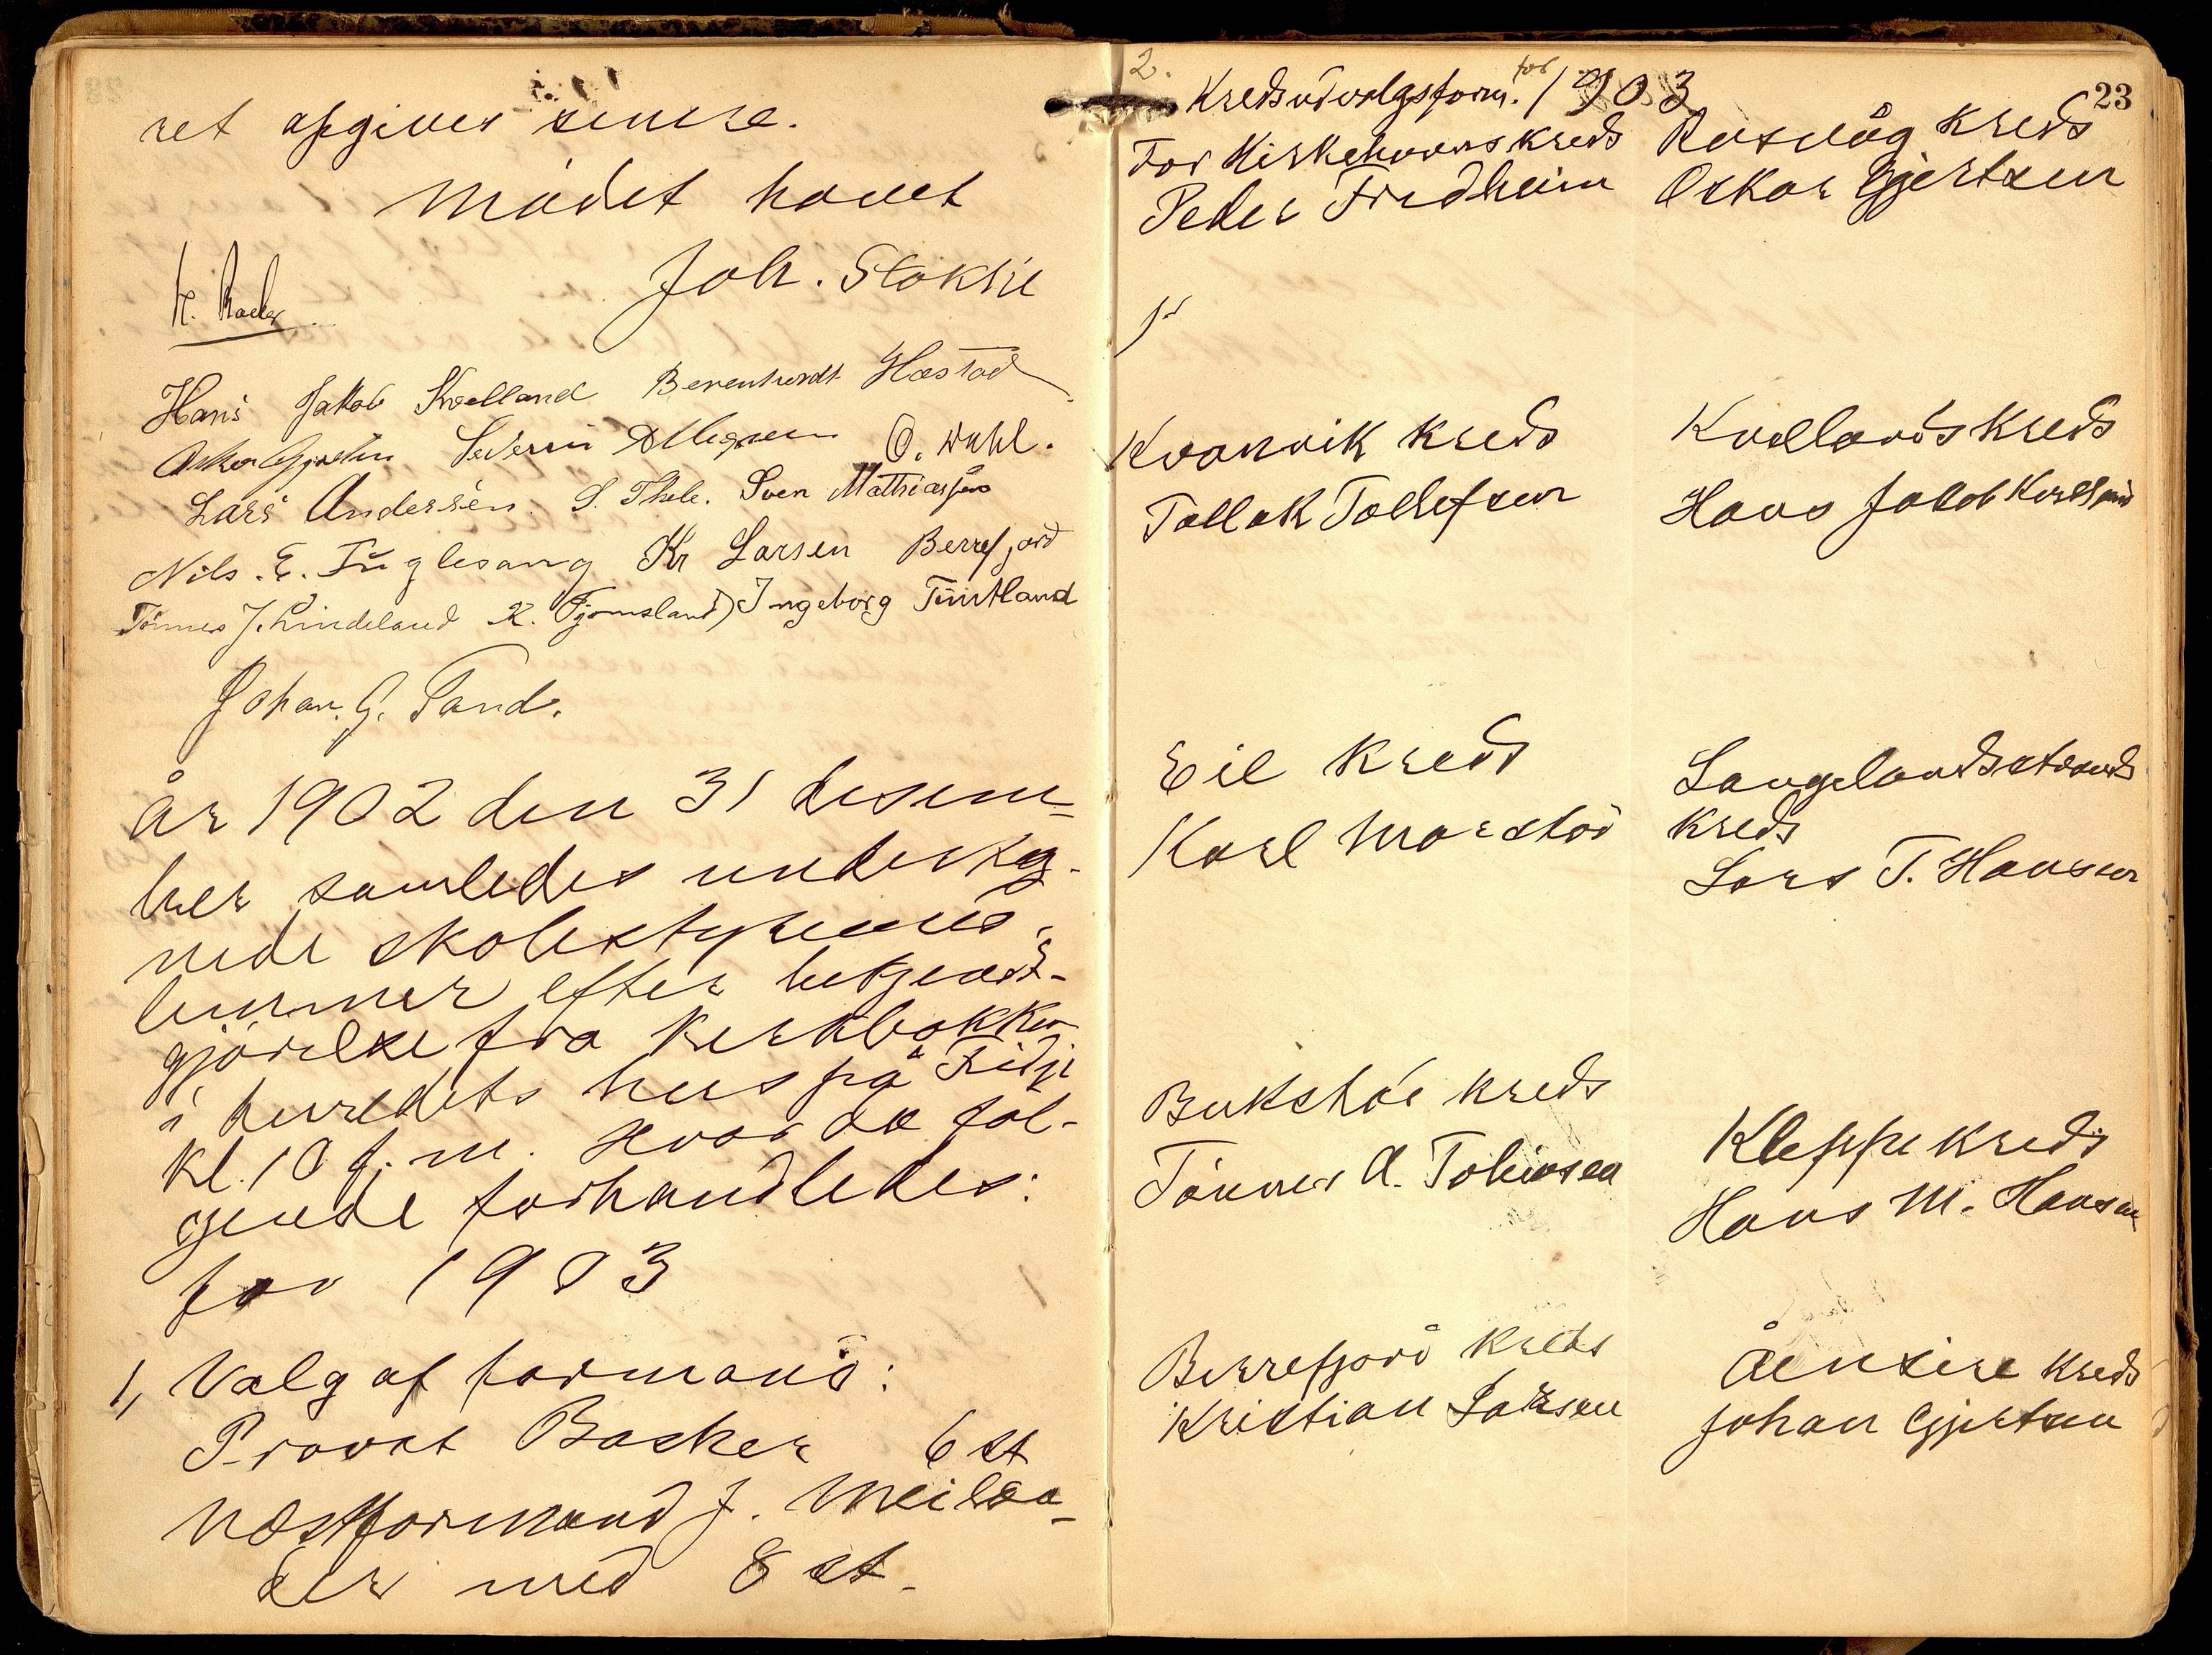 ret afgives senere.
Mödet hævet
Joh. Stokke
Hans Jakob Kvelland Berenhardt Hæstad
Severin O. Wahl.
Lars Andersen. S. Thele. Sven Mathiassen
Nils. E. Fuglesang Kr Larsen Berrefjord
Tönnes J. Lindeland K. Fjomsland Ingeborg Tinthland
Johan. G. Sand.
år 1902 den 31 desem=
ber samledes underteg-
nede skolestyremed-
lemmer efter bekjendt-
gjörelse fra kirkbakken
i herredets hus på Fidje
kl. 10 f. m. Hvor da föl-
gende forhandledes:
for 1903
1, Valg af formand:
Provst Basker 6 st
Næstformand J.
med 8 st.
23
2. Kredsudvalgsform. for 1903
For Kirkehavns kreds
Peder Fredheim
Rasvåg kreds
Oskar Gjertsen
Kvanvik kreds
Tollak Tollefsen
Kvellands kreds
Hans Jakob Kvelland
Eie kreds
Karl Marstöd
Langelandsstrands
kreds
Lars T. Hansen
Bukstöe kreds
Tönnes A. Tobiasen
Kleppe kreds
Hans M. Hansen
Berrefjord kreds
Kristian Larsen
Åensire kreds
Johan Gjertsen